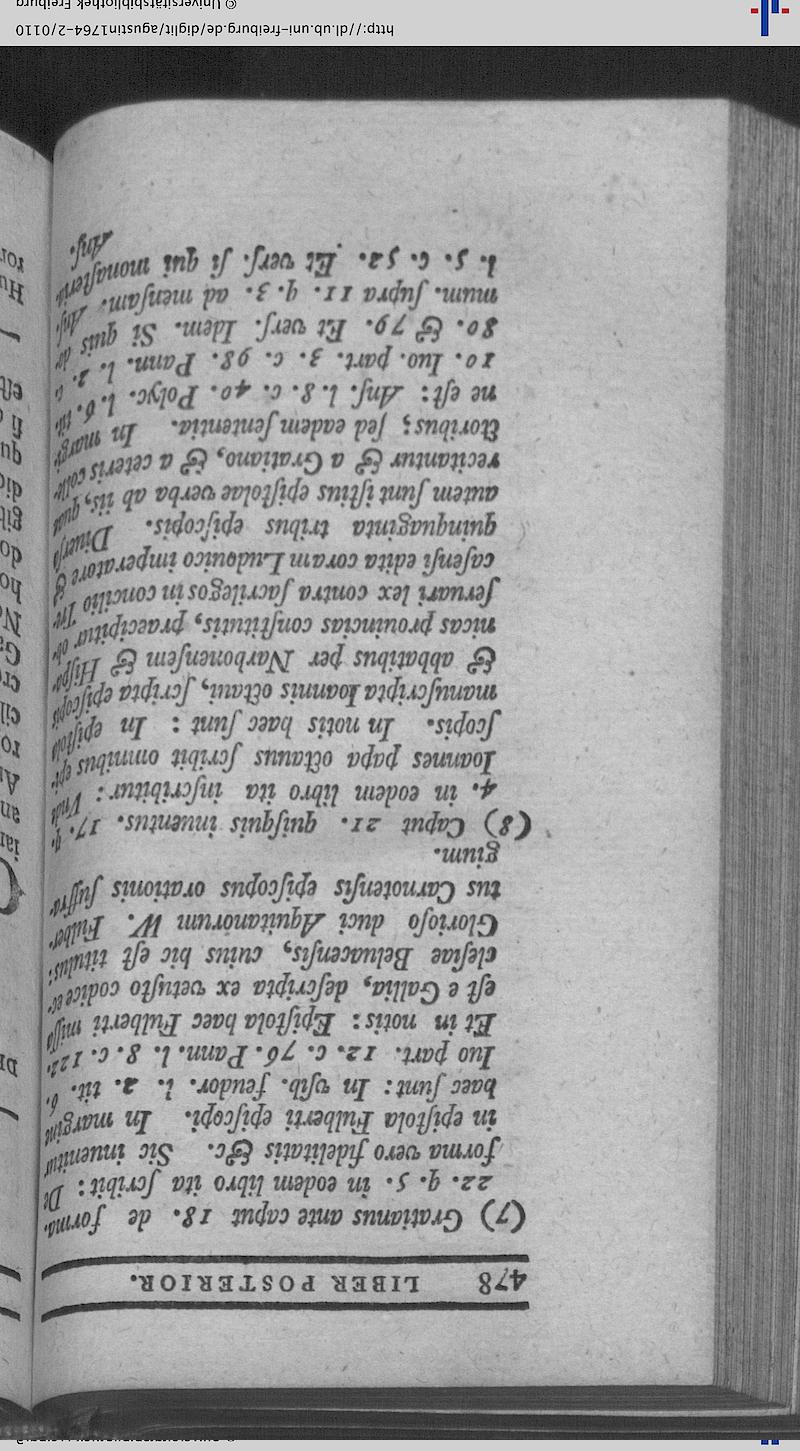 478 LIBER POSTERIOR.
(7) Gratianus ante caput 18. de forma.
22. q. 5. in eodem libro ita ſcribit: De
forma vero fidelitatis &c. Sic inuenitur
in epiſtola Fulberti epiſcopi. In margine
haec ſunt: In vſib. feudor. l. 2. tit. 6.
Iuo part. 12. c. 76. Pann. l. 8. c. 122.
Et in notis: Epiſtola haec Fulberti miſſa
eſt e Gallia, deſcripta ex vetuſto codice ec-
cleſiae Beluacenſis, cuius hic eſt titulus:
Glorioſo duci Aquitanorum W. Fulber-
tus Carnotenſis epiſcopus orationis ſuffra-
gium.
(8) Caput 21. quiſquis inuentus. 17. q.
4. in eodem libro ita inſcribitur: Vnde
Ioannes papa octauus ſcribit omnibus epi-
ſcopis. In notis haec ſunt: In epiſtola
manuſcripta Ioannis octaui, ſcripta epiſcopis
& abbatibus per Narbonenſem & Hiſpa-
nicas prouincias conſtitutis, praecipitur ob-
ſeruari lex contra ſacrilegos in concilio Tre-
caſenſi edita coram Ludouico imperatore &
quinquaginta tribus epiſcopis. Diuerſa
autem ſunt iſtius epiſtolae verba ab iis, quae
recitantur & a Gratiano, & a ceteris colle-
ctoribus; ſed eadem ſententia. In margi-
ne eſt: Anſ. l. 8. c. 40. Polyc. l. 6. tit.
10. Iuo. part. 3. c. 98. Pann. l. 2. c.
80. & 79. Et verſ. Idem. Si quis de
mum. ſupra 11. q. 3. ad menſam. Anſ.
l. 5. c. 52. Et verſ. ſi qui monaſteria
Anſ.
http://dl.ub.uni-freiburg.de/diglit/agustin1764-2/0110
© Universitätsbibliothek Freiburg